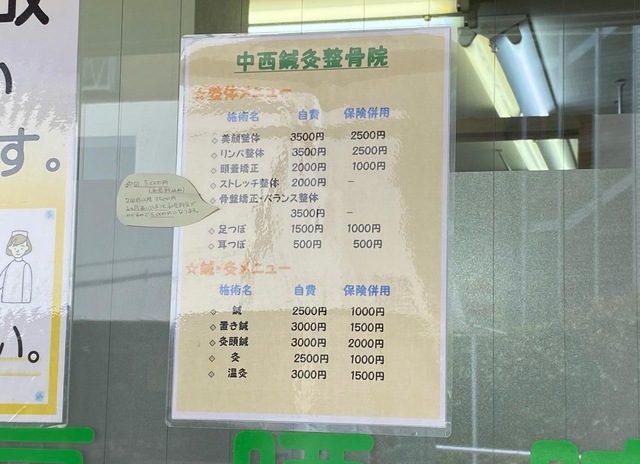 す。
い。
中西鍼灸整骨院
☆整体メニュー
施術名 自費 保険併用
◇美顔整体 3500円 2500円
◇リンパ整体 3500円 2500円
◇頭蓋矯正 2000円 1000円
◇ストレッチ整体 2000円 －
◇骨盤矯正・バランス整体
3500円 －
◇足つぼ 1500円 1000円
◇耳つぼ 500円 500円
☆鍼・灸メニュー
施術名 自費 保険併用
◇鍼 2500円 1000円
◇置き鍼 3000円 1500円
◇灸頭鍼 3000円 2000円
◇灸 2500円 1000円
◇温灸 3000円 1500円